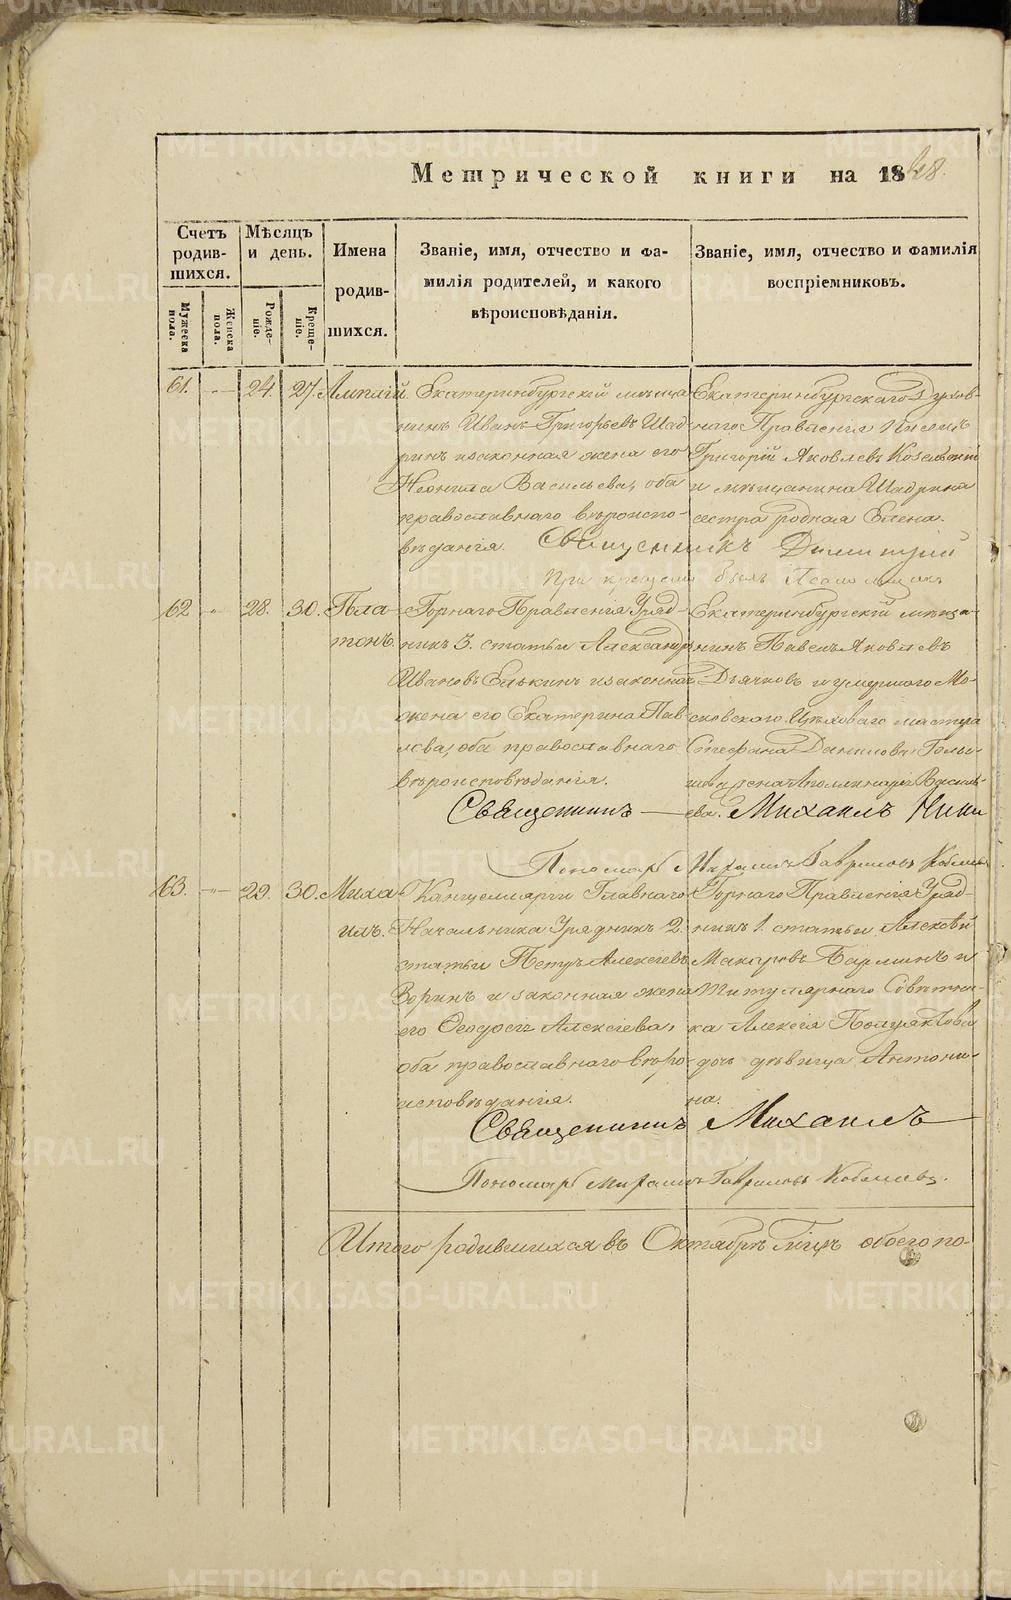 Метрической книги на 1848.
Счетъ родившихся.
Мѣсяцъ и день.
Имена родившихся.
Званіе, имя, отчество и фамилія родителей, и какого вѣроисповѣданія.
Званіе, имя, отчество и фамилія воспріемниковъ.
Мужеска пола.
Женска пола.
Рожденіе.
Крещеніе.
61. 24. 27. Амплій.
Екатеринбургскій мѣща-
нинъ Иванъ Григорьевъ Шад-
ринъ и законная жена его
Неонила Васильева, оба
православнаго вѣроиспо-
вѣданія.
Екатеринбургскаго Духов-
наго Правленія
Григорій Яковлевъ
и мѣщанина Шадрина
сестра родная Елена.
Священникъ Димитрій
При крещеніи былъ
62 28. 30. Пла-
тонъ.
Горнаго Правленія Уряд-
никъ 3. статьи Александръ
Ивановъ Елькинъ и законная
жена его Екатерина Пав-
лова, оба православнаго
вѣроисповѣданія.
Екатеринбургскій мѣща-
нинъ Павелъ Яковлевъ
Дьячковъ и умершаго Мо-
сковскаго Цѣховаго мастера
Стефана Данилова
жена Аполлинарія Василь-
ева.
Священникъ Михаилъ
Пономарь Гавриловъ
63. 29. 30. Миха-
илъ.
Канцеляріи Главнаго
Начальника Урядникъ 2.
статьи Петръ Алексѣевъ
Зоринъ и законная жена
его Ѳеодосія Алексѣева,
оба православнаго вѣро-
исповѣданія.
Горнаго Правленія Уряд-
никъ 1. статьи Алексѣй
Макаровъ и
Титулярнаго Совѣтни-
ка Алексія Полуяктова
дочь дѣвица Антони-
на.
Священникъ Михаилъ
Пономарь Гавриловъ
Итого родившихся въ Октябрѣ мѣцѣ обоего по-
METRIKI.GASO-URAL.RU